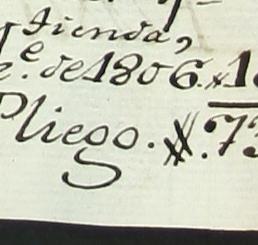 tienda,
e. de 1806.
Pliego. N. 73